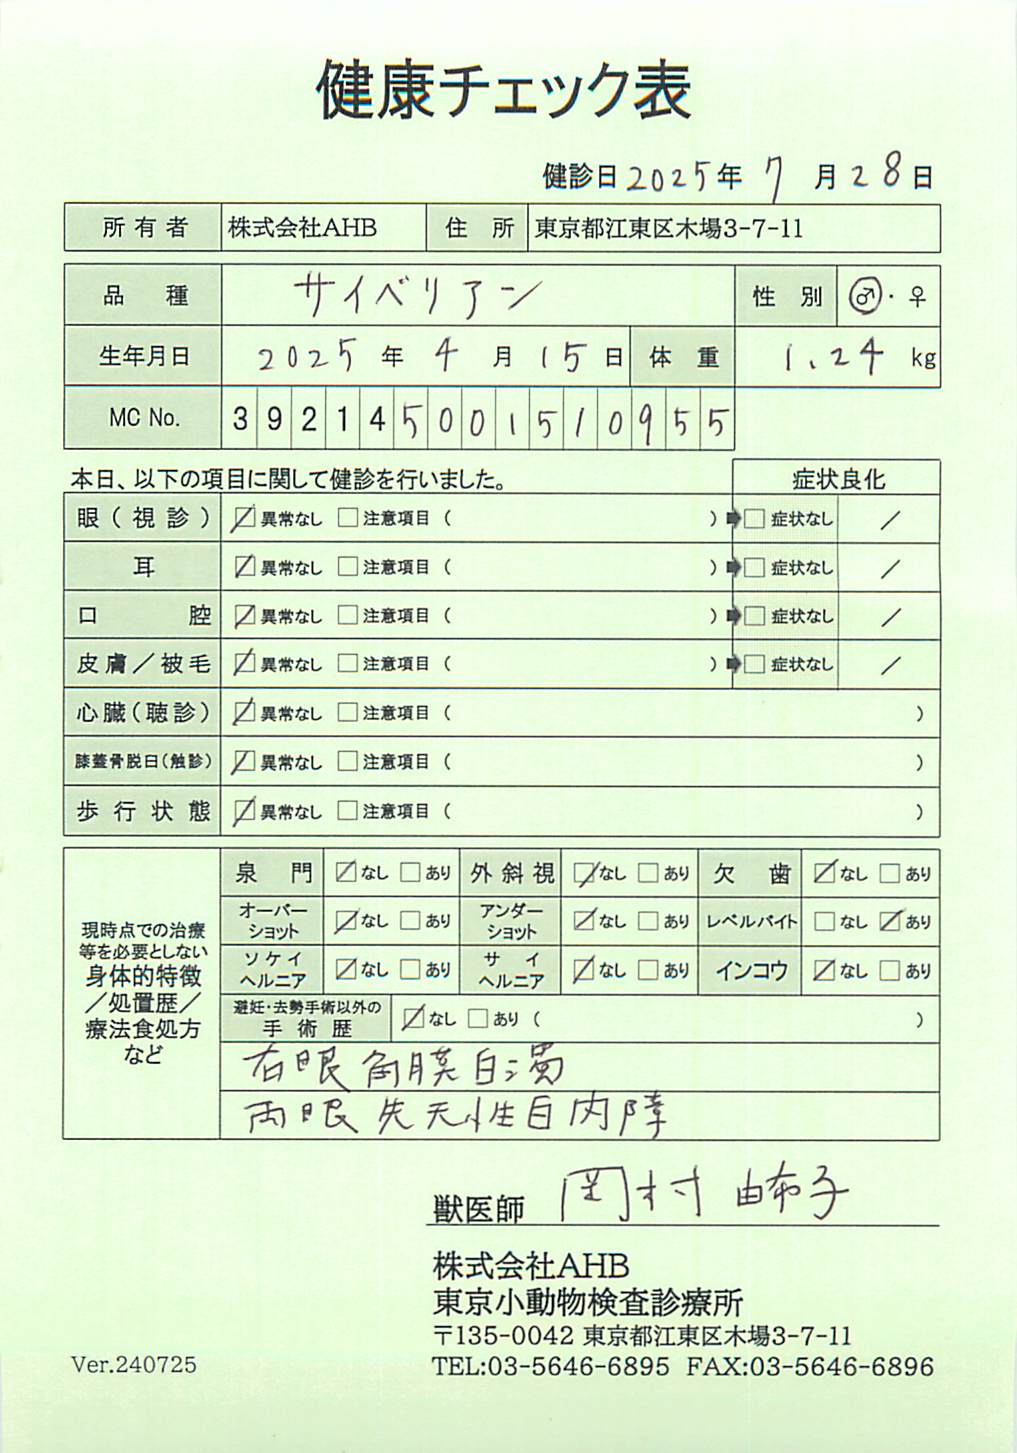 健康チェック表
健診日 2025年 7月 28日
所有者 株式会社AHB 住所 東京都江東区木場3-7-11
品種 サイベリアン 性別 ♂・♀
生年月日 2025年 4月 15日 体重 1.24 kg
MC No. 392145001510955
本日、以下の項目に関して健診を行いました。 症状良化
眼(視診) ☑異常なし □注意項目( )➡□症状なし /
耳 ☑異常なし □注意項目( )➡□症状なし /
口腔 ☑異常なし □注意項目( )➡□症状なし /
皮膚/被毛 ☑異常なし □注意項目( )➡□症状なし /
心臓(聴診) ☑異常なし □注意項目( )
膝蓋骨脱臼(触診) ☑異常なし □注意項目( )
歩行状態 ☑異常なし □注意項目( )
現時点での治療
等を必要としない
身体的特徴
/処置歴/
療法食処方
など
泉門 ☑なし □あり 外斜視 ☑なし □あり 欠歯 ☑なし □あり
オーバーショット ☑なし □あり アンダーショット ☑なし □あり レベルバイト □なし ☑あり
ソケイヘルニア ☑なし □あり サイヘルニア ☑なし □あり インコウ ☑なし □あり
避妊・去勢手術以外の手術歴 ☑なし □あり( )
右眼角膜白濁
両眼先天性白内障
獣医師 岡村 由布子
株式会社AHB
東京小動物検査診療所
〒135-0042 東京都江東区木場3-7-11
Ver.240725 TEL:03-5646-6895 FAX:03-5646-6896